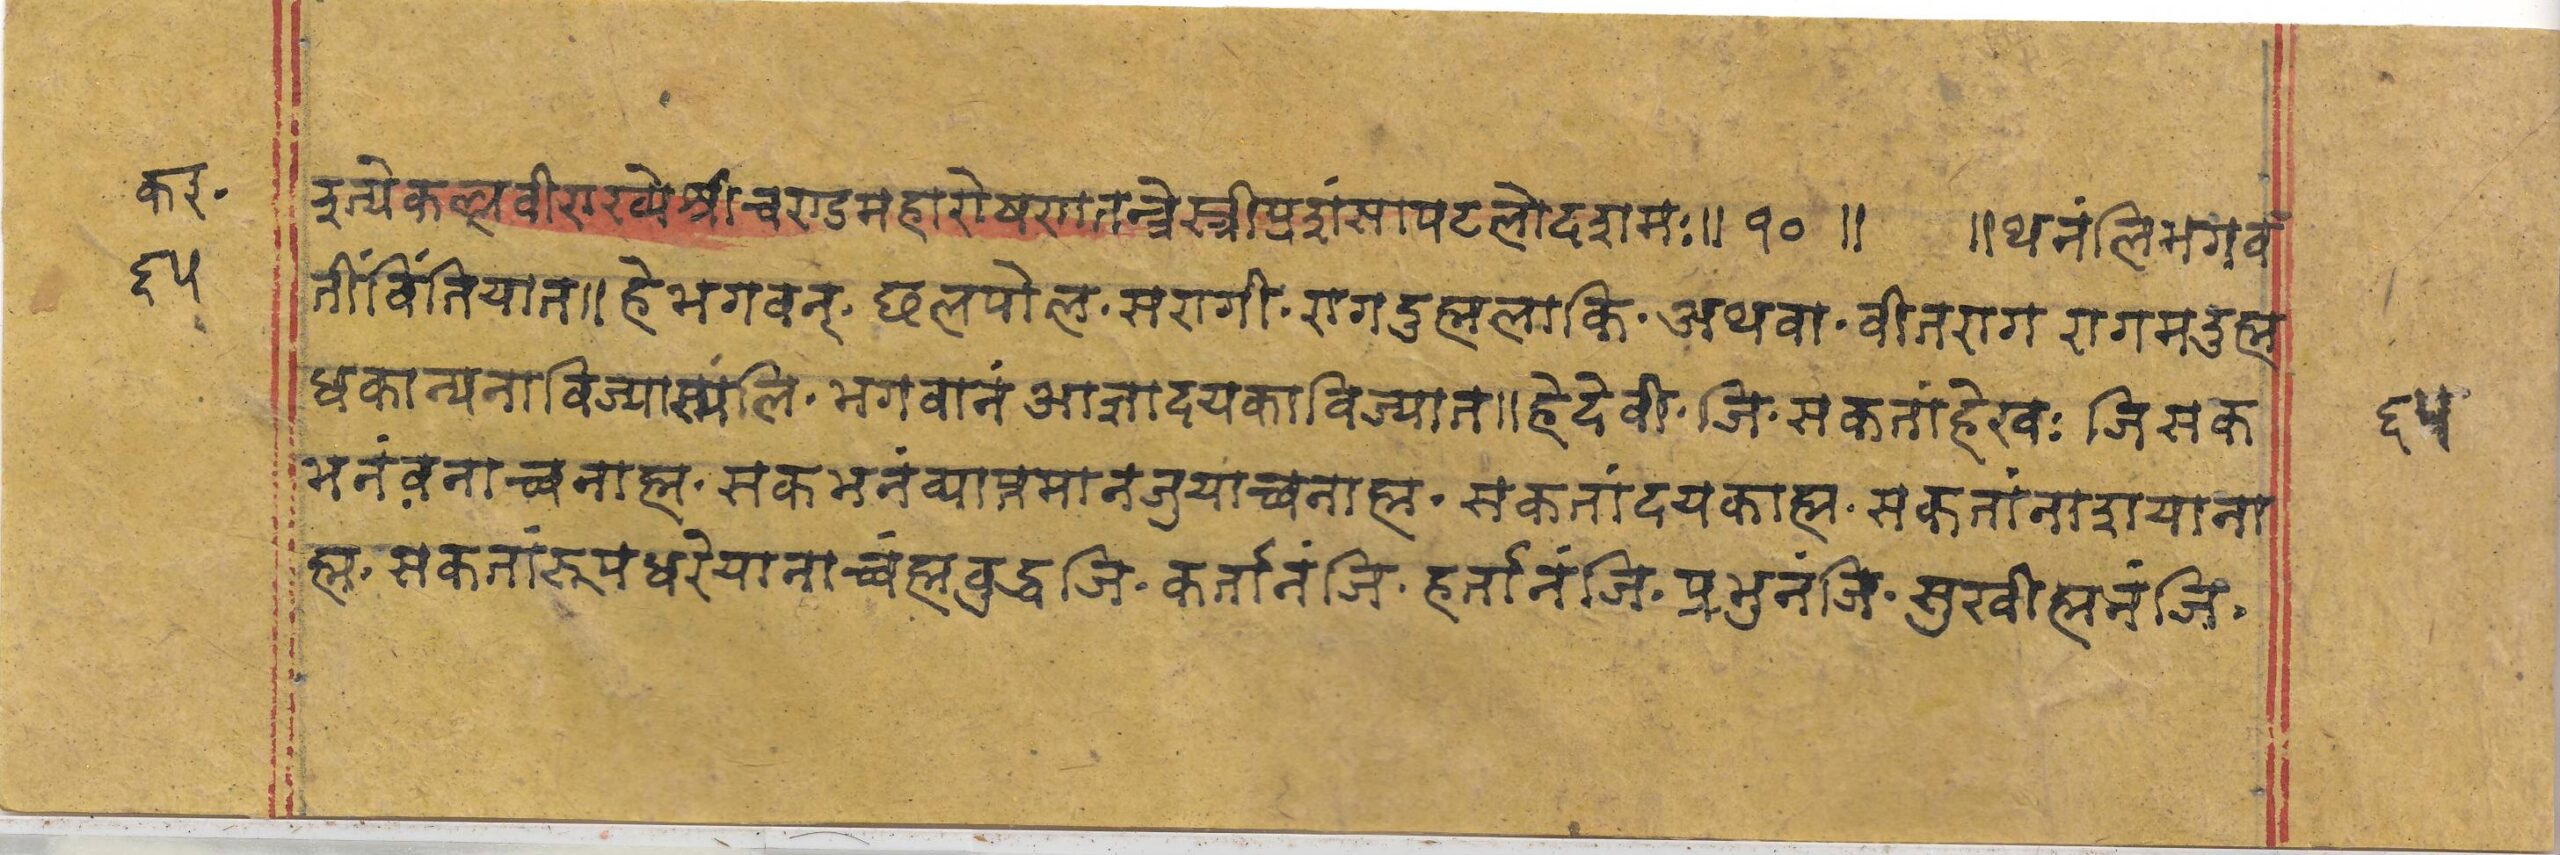 कर.
६५
इत्येकल्लवीराख्येश्रीचण्डमहारोषणतन्त्रेस्त्रीप्रशंसापटलोदशमः॥ १० ॥ ॥थनंलिभगव
तींविंतियात॥ हे भगवन्. छलपोल. सरागी. रागदुह्मलाकि. अथवा. वीतराग रागमदुह्म
धकान्यनाविज्यास्यंलि. भगवानं आज्ञादयकाविज्यात॥ हे देवी. जि. सकतांहेखः जिसक
भनंवनाच्वनाह्म. सकभनंव्याप्तमानजुयाच्वनाह्म. सकतांदयकाह्म. सकतांनाशयाना
ह्म. सकतांरूपधरेयानाच्वंह्मवुद्धजि. कर्तानंजि. हर्तानंजि. प्रभुनंजि. सुखीह्मनंजि.
६५